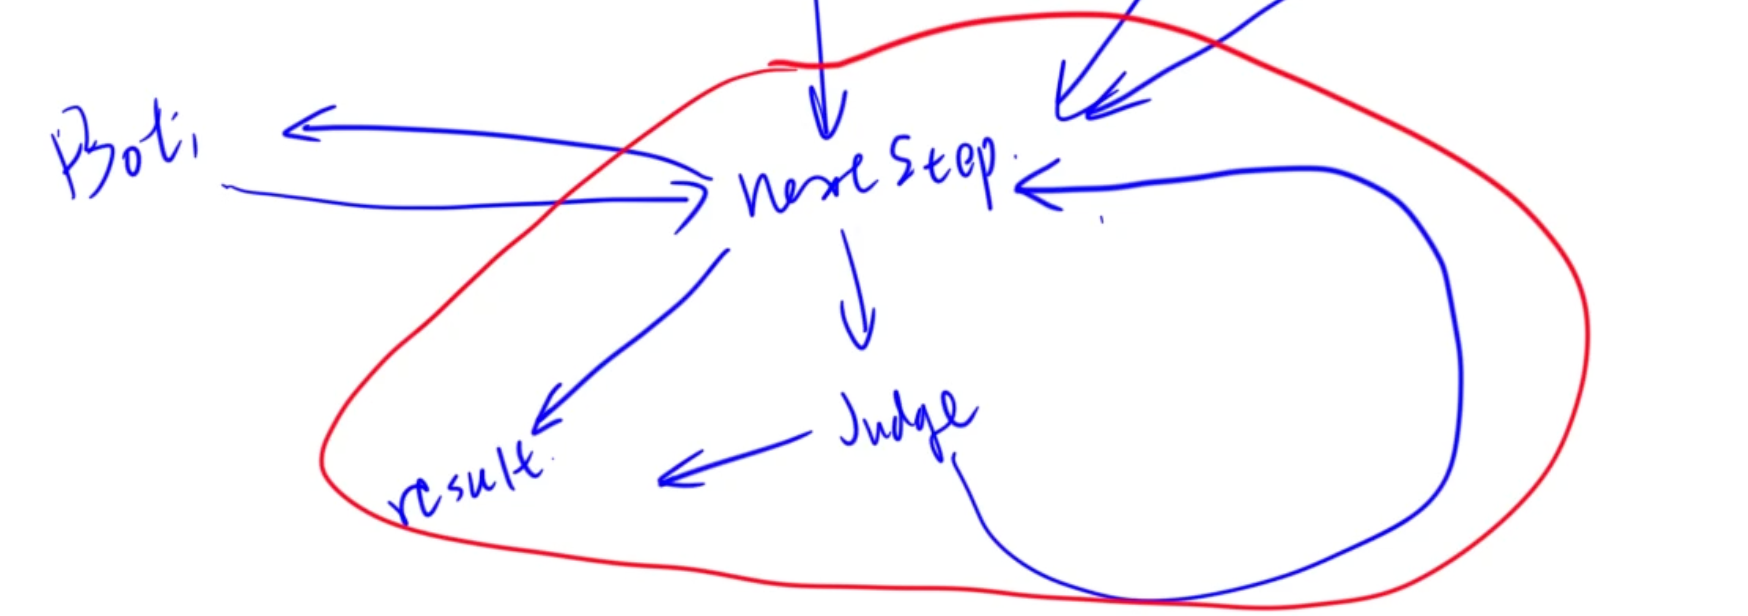 Bot,
next Step.
Judge
result.